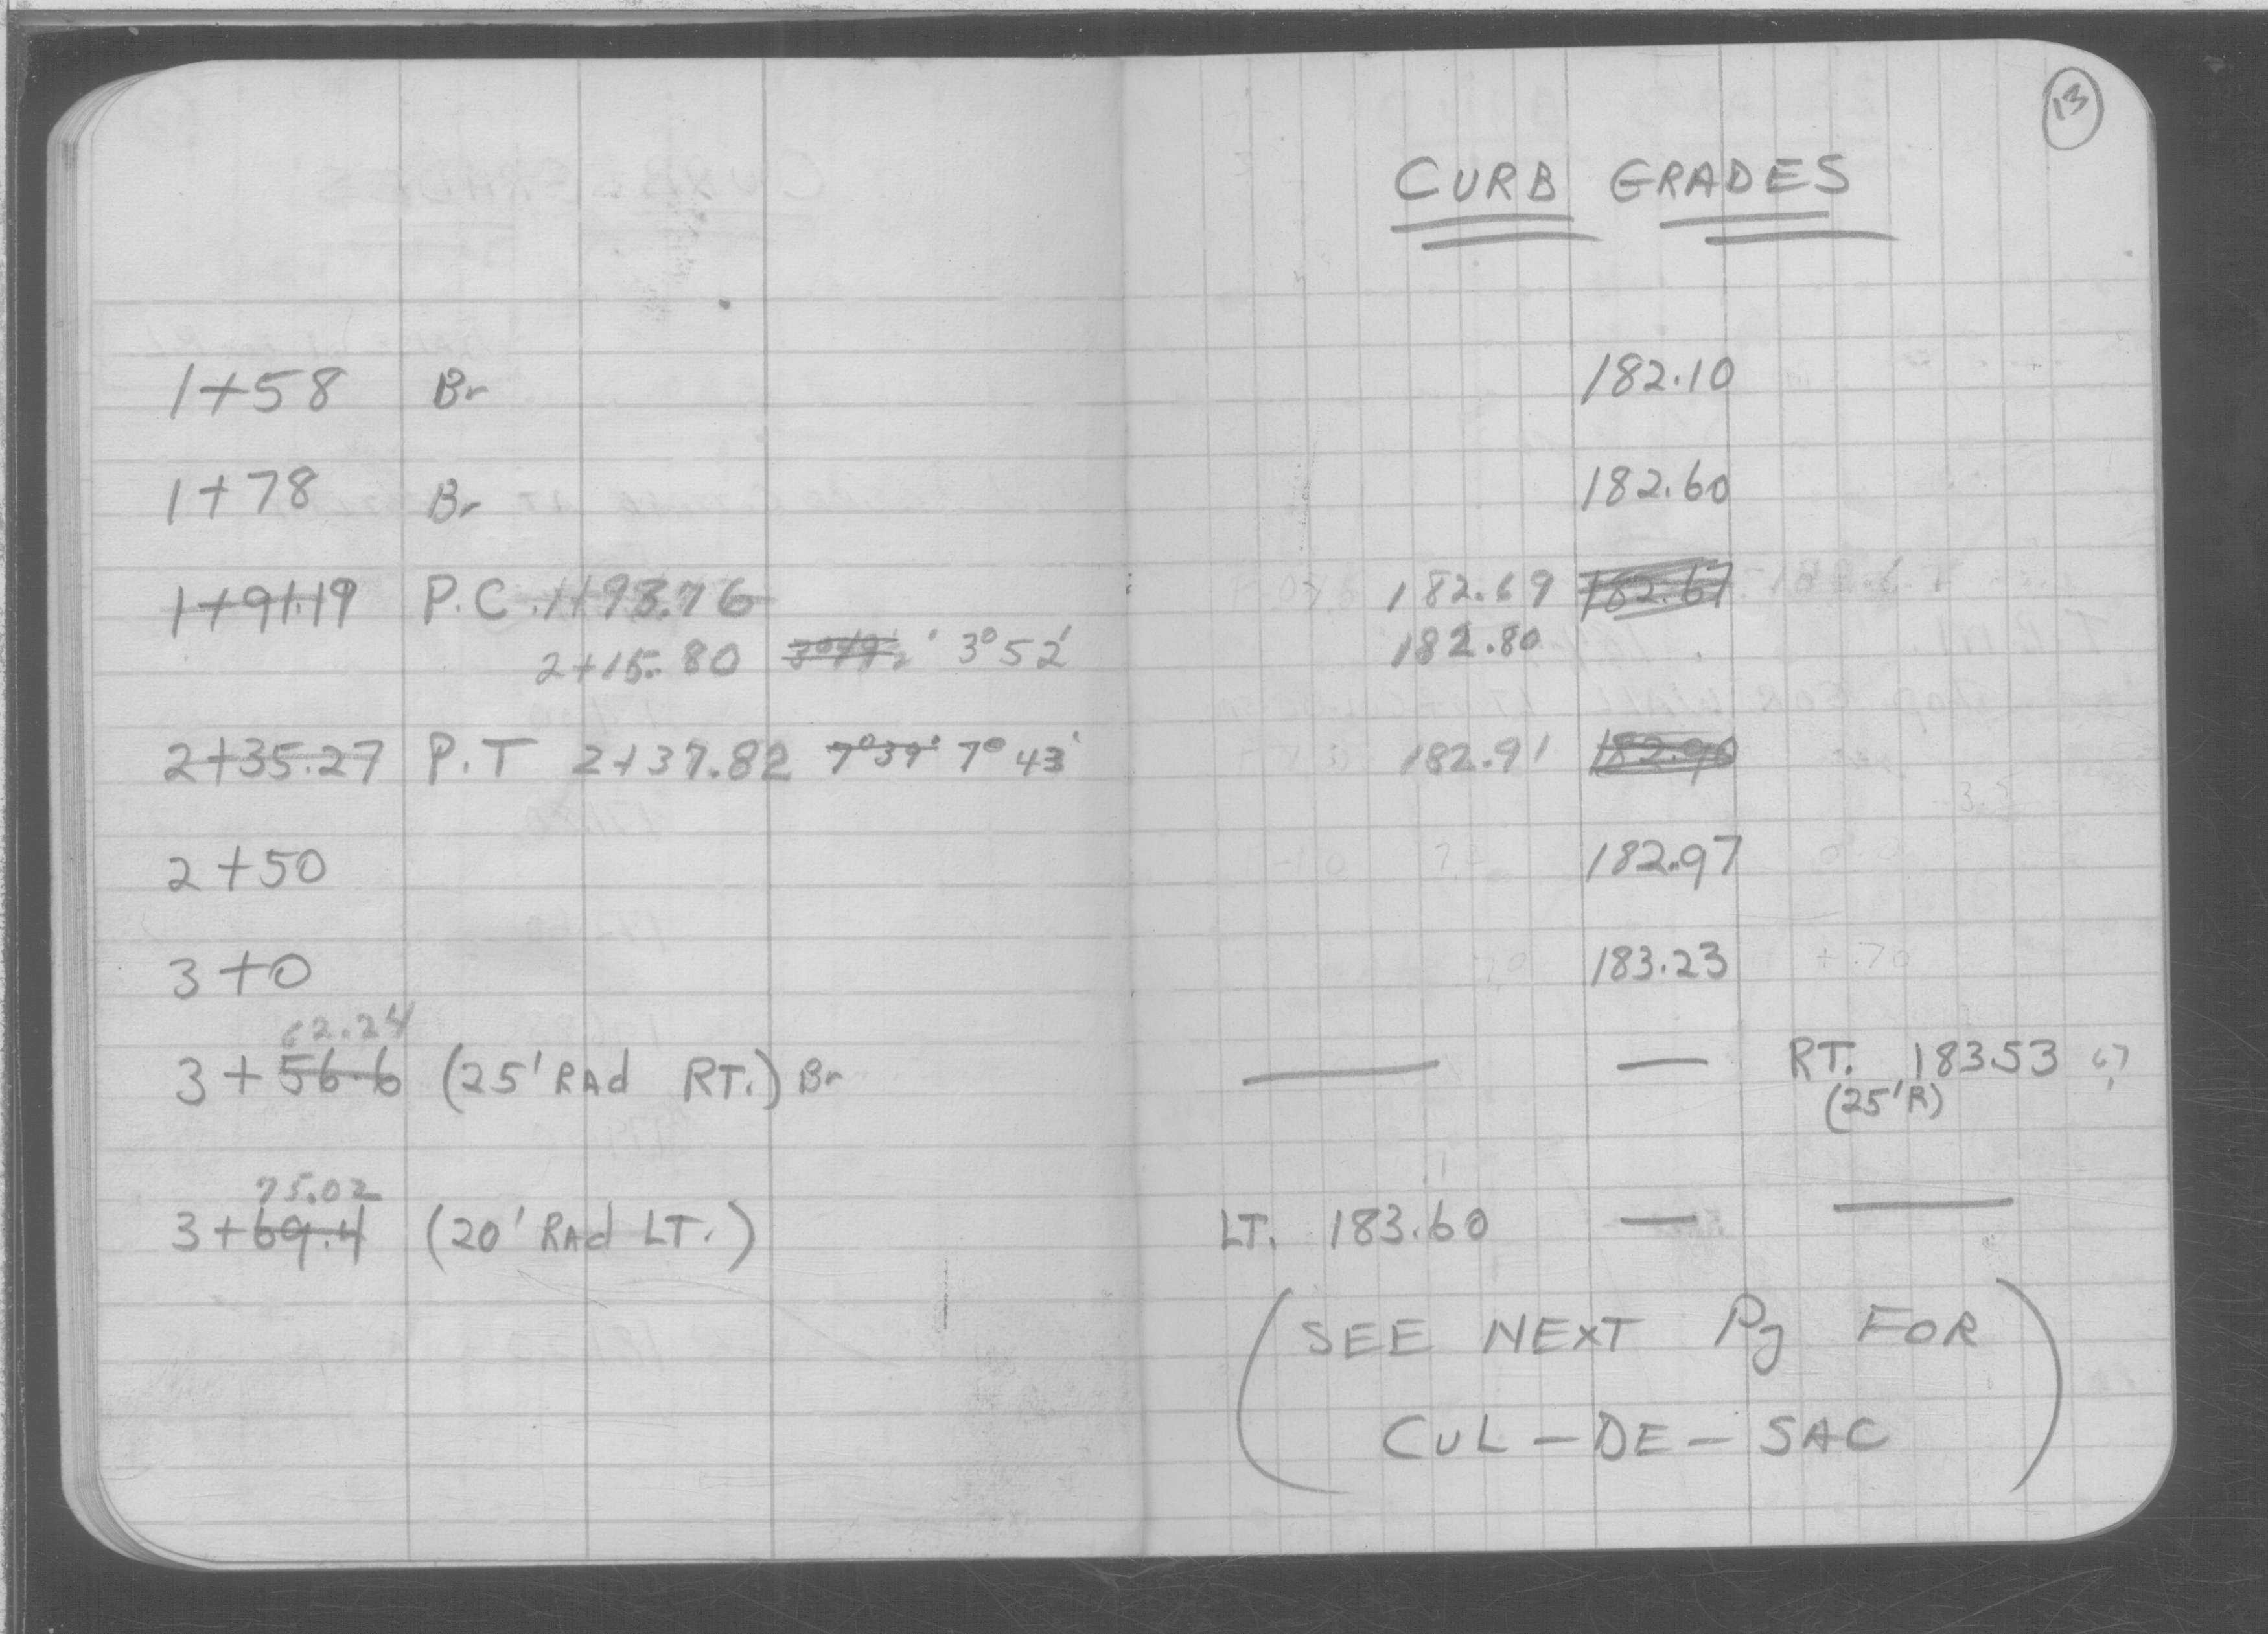 13
CURB GRADES
1+58 Br 182.10
1+78 Br 182.60
1+91.19 P.C. 1+93.76 182.69 182.67
2+15.80 3°52' 182.80
2+35.27 P.T 2+37.82 7°39' 7°43' 182.91 182.90
2+50 182.97
3+0 183.23
62.24
3+56.6 (25' RAd RT.) Br — — RT. 183.53 67
(25'R)
75.02
3+69.4 (20' RAd LT.) LT. 183.60 — —
(SEE NEXT Pg FOR
CUL-DE-SAC)